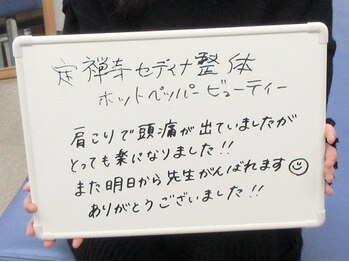 定禅寺セディナ整体
ホットペッパービューティー
肩こりで頭痛が出ていましたが
とっても楽になりました!!
また明日から先生がんばれます☺
ありがとうございました!!